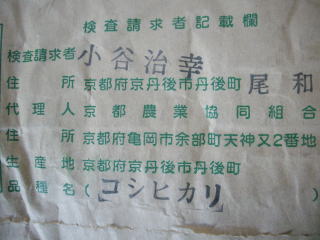 検査請求者記載欄
検査請求者 小谷治幸
住所 京都府京丹後市丹後町 尾和
代理人 京都農業協同組合
住所 京都府亀岡市余部町天神又2番地
生産地 京都府京丹後市丹後町
品種名 (コシヒカリ)